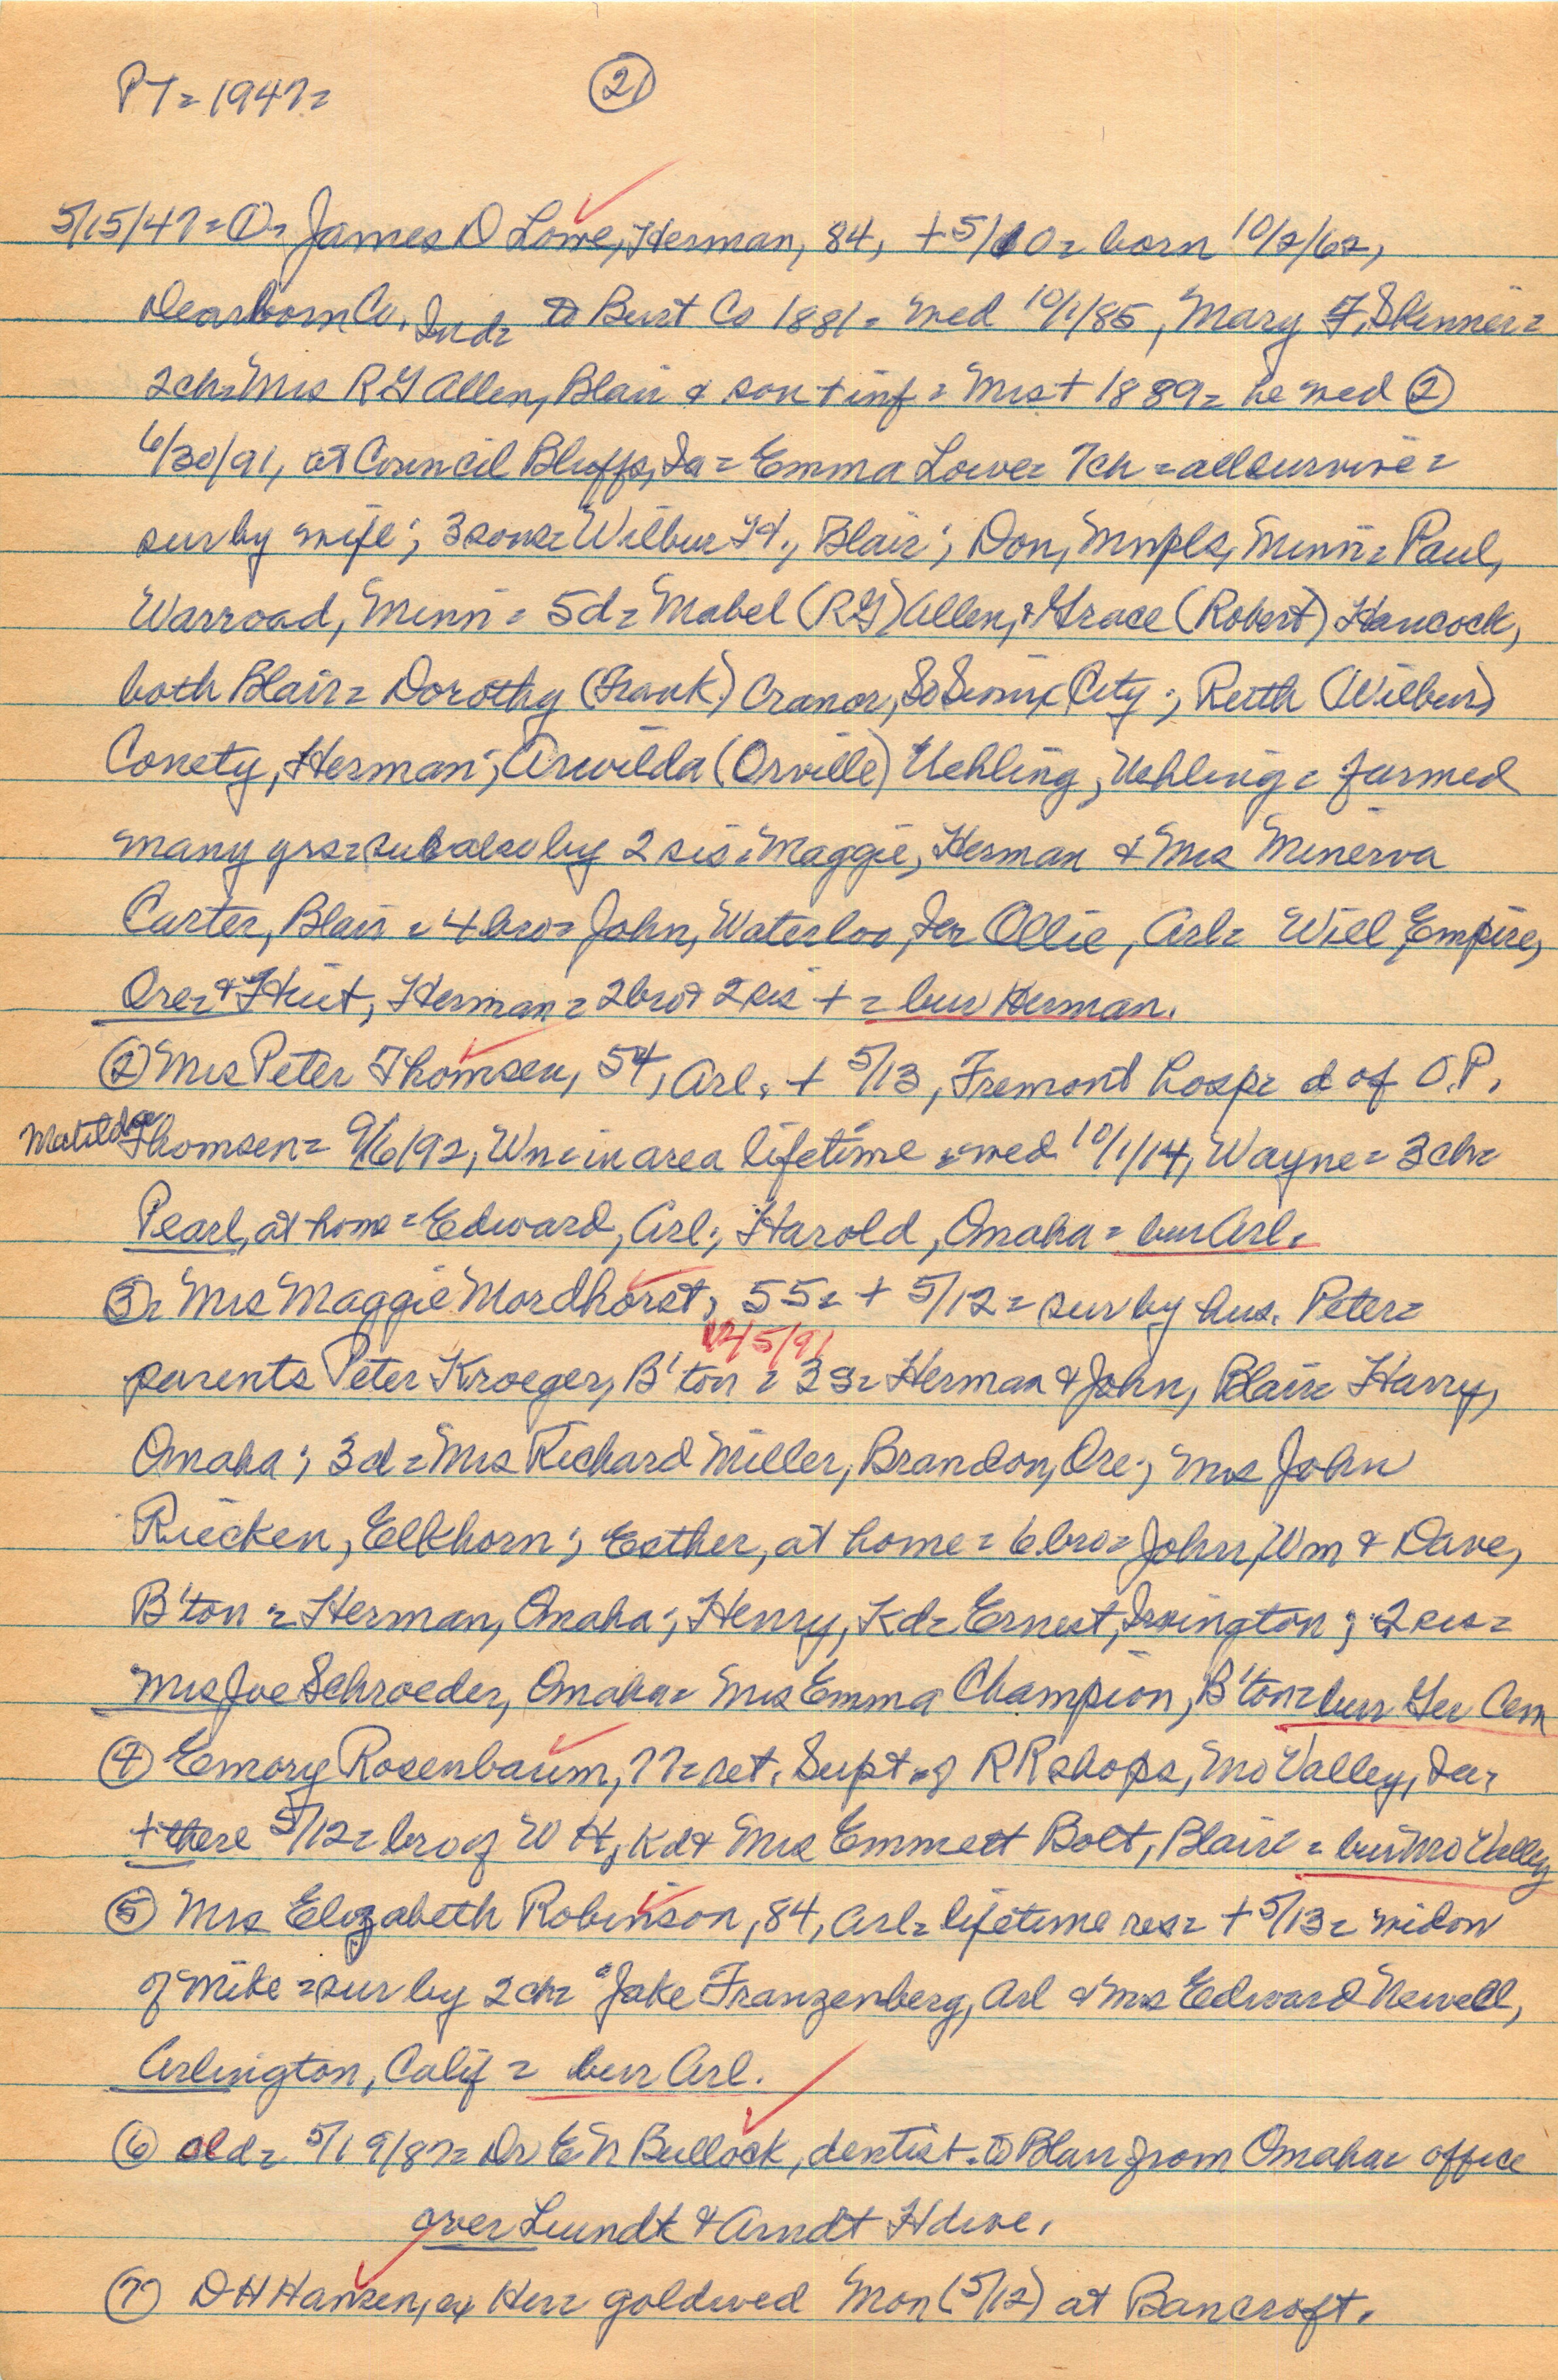 PT = 1947 =
2
5/15/47 = ① = James D Lowe, Herman, 84, + 5/10 = born 10/2/62,
Dearborn Co, Ind = to Burt Co 1881 = wed 10/1/85, Mary F. Skinner =
2 ch = Mrs R G Allen, Blair & son + inf = Mrs + 1889 = he wed ②
6/30/91, at Council Bluffs, Ia = Emma Lowe = 7 ch = all survive =
sur by wife; 3 sons = Wilbur Blair; Don, Mnpls, Minn = Paul,
Warroad, Minn = 5 d = Mabel (R G) Allen, & Grace (Robert) Hancock,
both Blair = Dorothy (Frank) Cranor, So Sioux City; Ruth (Wilbur)
Conety, Herman; Arwilda (Orville) Uehling, Uehling = farmed
many yrs = sur also by 2 sis = Maggie, Herman & Mrs Minerva
Carter, Blair = 4 bro = John, Waterloo, Ia = Ollie, Arl = Will, Empire,
Ore = & Hiet, Herman = 2 bro & 2 sis + = bur Herman.
② Mrs Peter Thomsen, 54, Arl. + 5/13, Fremont hosp = d of O.P.
Matilda Thomsen = 9/6/92, Wn = in area lifetime = wed 10/1/14, Wayne = 3 ch =
Pearl, at home = Edward, Arl; Harold, Omaha = bur Arl.
③ = Mrs Maggie Mordhorst, 55 = + 5/12 = sur by hus. Peter =
12/5/91
parents Peter Kroeger, B'ton = 3 s = Herman & John, Blair = Harry,
Omaha; 3 d = Mrs Richard Miller, Brandon, Ore; Mrs John
Riecken, Elkhorn; Esther, at home = 6 bro = John, Wm & Dave,
B'ton = Herman, Omaha; Henry, Kd = Ernest, Irvington; 2 sis =
Mrs Joe Schroeder, Omaha = Mrs Emma Champion, B'ton = bur Ger Cem
④ Emory Rosenbaum, 77 = ret. Supt of RR shops, Mo Valley, Ia =
+ there 5/12 = bro of W H, Kd & Mrs Emmett Bolt, Blair = bur Mo Valley
⑤ Mrs Elizabeth Robinson, 84, Arl = lifetime res = + 5/13 = widow
of Mike = sur by 2 ch = Jake Franzenberg, Arl & Mrs Edward Newell,
Arlington, Calif = bur Arl.
⑥ old = 5/19/87 = Dr E N Bullock, dentist to Blair from Omaha = office
over Lundt & Arndt Hdwe.
⑦ D H Hansen, ex Her = gold wed Mon (5/12) at Bancroft.